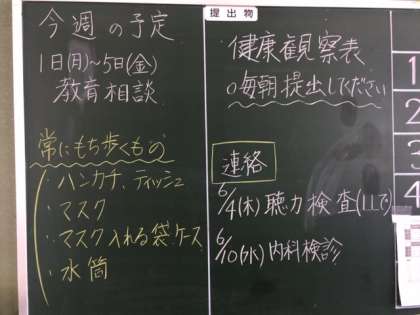 今週の予定
1日(月)~5日(金)
教育相談
常にもち歩くもの
・ハンカチ、ティッシュ
・マスク
・マスク入れる袋、ケース
・水筒
提出物
健康観察表
○毎朝提出してください
連絡
6/4(木)聴力検査(1,1,1で)
6/10(水)内科検診
1
2
3
4